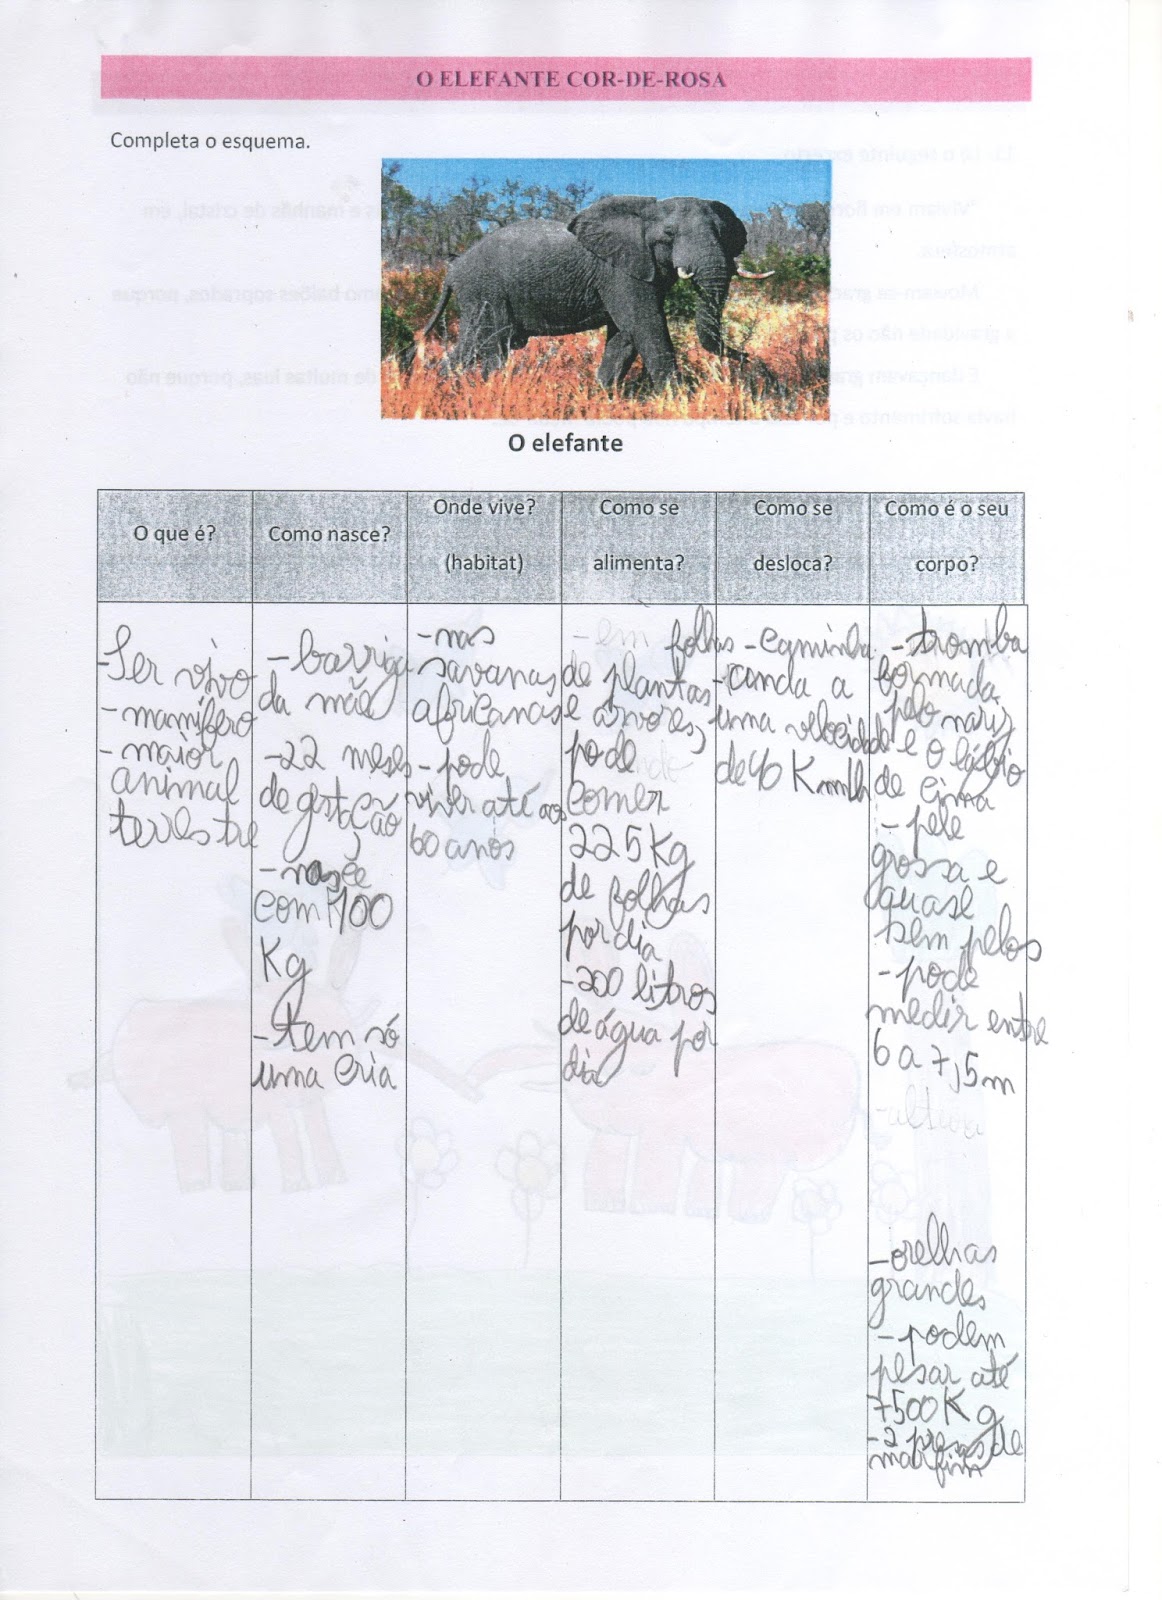 O ELEFANTE COR-DE-ROSA
Completa o esquema.
O elefante
O que é?
Como nasce?
Onde vive?
(habitat)
Como se
alimenta?
Como se
desloca?
Como é o seu
corpo?
-Ser vivo
-mamífero
-maior
animal
terrestre
-barriga
da mãe
-22 meses
de gestação
-nasce
com 100
Kg
-tem só
uma cria
-nas
savanas
africanas
-pode
viver até aos
60 anos
-em folhas
de plantas
e árvores,
pode
comer
225 Kg
de folhas
por dia
-200 litros
de água por
dia
-Caminha
-anda a
uma velocidade
de 40 Km/h
-tromba
formada
pelo nariz
e o lábio
de cima
-pele
grossa e
quase
sem pelos
-pode
medir entre
6 a 7,5m
-altura
-orelhas
grandes
-podem
pesar até
7500 Kg
-2 presas de
marfim